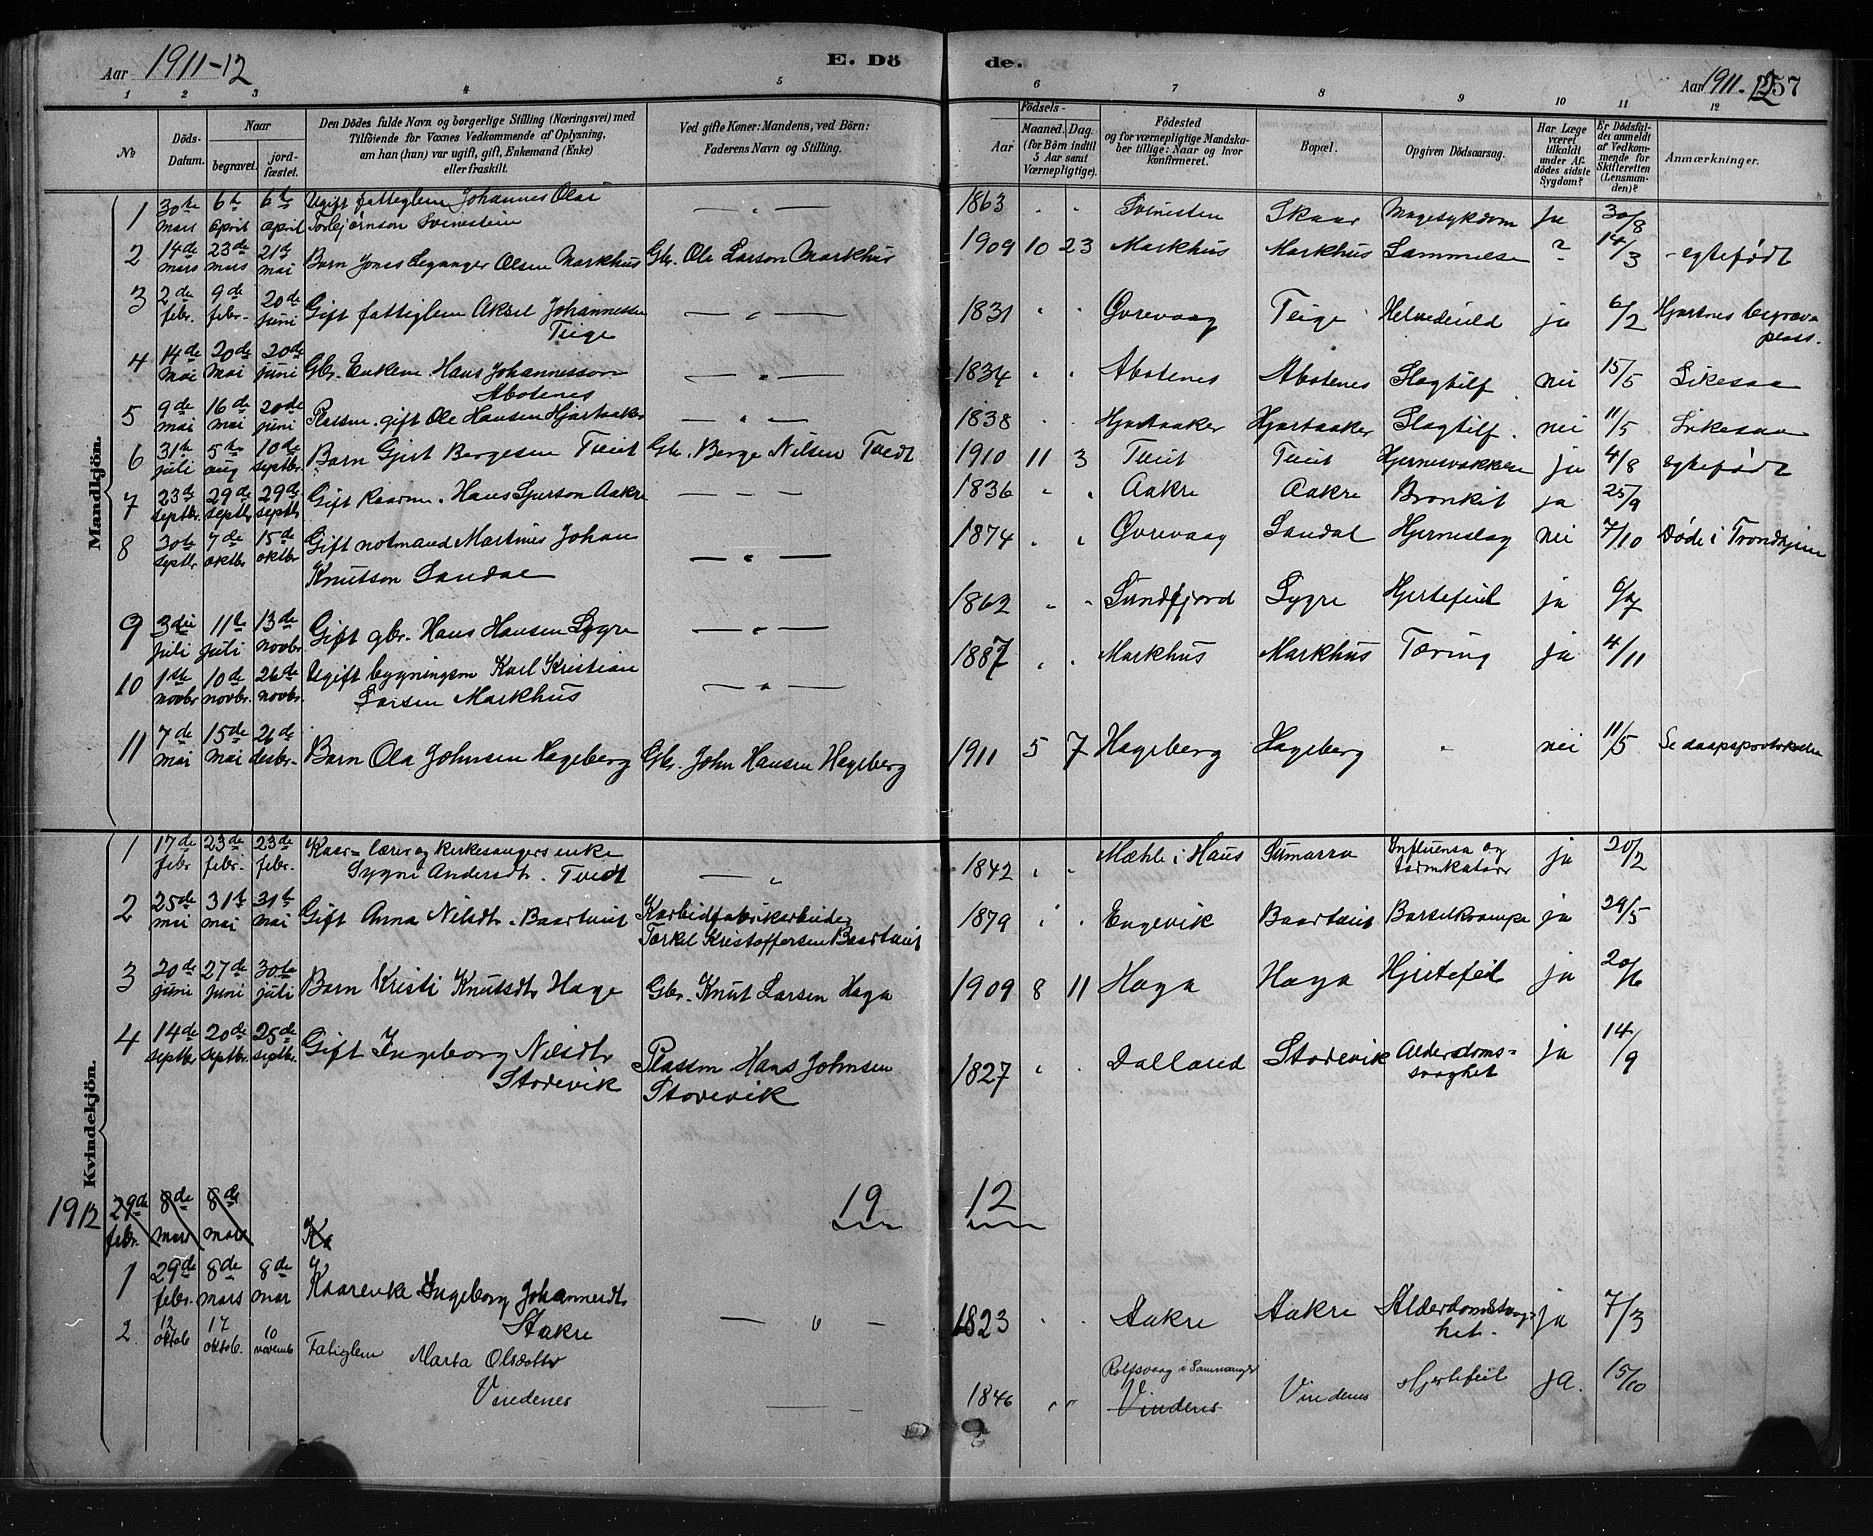 Aar 1911-12
E. Dö
de.
Aar 1911-12
257
1 2 3 4 5 6 7 8 9 10 11 12
No
Döds-Datum.
Naar
begravet.
jord-fæstet.
Den Dödes fulde Navn og borgerlige Stilling (Næringsvei) med
Tilföiende for Voxnes Vedkommende af Oplysning,
om han (hun) var ugift, gift, Enkemand (Enke)
eller fraskilt.
Ved gifte Koner: Mandens, ved Börn:
Faderens Navn og Stilling.
Födsels-
Aar
Maaned. Dag.
(for Börn indtil
5 Aar samt
Værnepligtige).
Födested
og for værnepligtige Mandska-
ber tillige: Naar og hvor
konfirmeret.
Bopæl.
Opgiven Dödsaarsag.
Har Læge
været
tilkaldt
under Af-
dödes sidste
Sygdom?
Er Dödsfal-
det anmeldt
af Vedkom-
mende for
Skifteretten
(Lensman-
den)?
Anmærkninger.
Mandkjön.
1 30te mars 6te april 6te april Ugift fattiglem Johannes Olai Torbjørnson Svinestein — " — 1863 " " Svinesten Skaar Mavesykdom ja 30/8
2 14de mars 23de mars 21de mai Barn Jonas Leganger Olsen Markhus Gbr. Ole Larson Markhus 1909 10 23 Markhus Markhus Lammelse ? 14/3 - egtefødt
3 2de febr. 9de febr. 20de juni Gift fattiglem Aksel Johannessen Teige — " — 1831 " " Øvrevaag Teige Helvedesild ja 6/2 Hjartnes begrav. plass.
4 14de mai 20de mai 20de juni Gbr. Enkem. Hans Johannesson Abotenes — " — 1834 " " Abotenes Abotenes Slagtilf. nei 15/5 Likesaa
5 9de mai 16de mai 20de juni Plassm. gift Ole Hansen Hjartaaker — " — 1838 " " Hjartaaker Hjartaaker Slagtilf. nei 11/5 Likesaa
6 31te juli 5te aug 10de septbr. Barn Gjert Bergesen Tveit Gbr. Berge Nilsen Tvedt 1910 11 3 Tveit Tveit Hjernevakken ja 4/8 egtefødt
7 23de septbr. 29de septbr 29de septbr Gift Kaarm. Hans Sjurson Aakre — — — 1836 " " Aakre Aakre Bronkit ja 25/9
8 30te septbr. 7de oktbr 15de oktbr Gift notmand Martinus Johan Knutson Sandal — " — 1874 " " Øvrevaag Sandal Hjerneslag nei 7/10 Døde i Trondhjem
9 3die juli 11te juli 13de novbr Gift gbr. Hans Hansen Lygre — " — 1862 " " Sundfjord Lygre Hjertefeil ja 6/7
10 1ste novbr 10de novbr. 26de novbr. Ugift bygningssn. Karl Kristian Larsen Markhus — " — 1887 " " Markhus Markhus Tæring ja 4/11
11 7de mai 15de mai 26de desbr. Barn Ola Johnsen Hageberg Gbr. John Hansen Hageberg 1911 5 7 Hageberg Hageberg " nei 11/5 Se daapsprotokollen
Kvindekjön.
1 17de febr 23de febr. 23de febr. Kaar- lærer og kirkesangers enke Sygni Andersdtr. Tvedt — " 1842 " " Mæhle i Haus Gumarra Influensa og tarmkatarr ja 20/2
2 25de mai 31te mai 31te mai Gift Anna Nilsdtr. Baartveit Karbidfabrikarbeider Torkel Kristoffersen Baartveit 1879 " " Engevik Baartveit Barselkrampe ja 29/5
3 20de juni 27de juni 30te juli Barn Kristi Knutsdtr Haga Gbr. Knut Larsen Haga 1909 8 11 Haga Haga Hjertefeil ja 20/6
4 14de septbr. 20de septbr. 25de septbr. Gift Ingeborg Nilsdtr Storevik Plassm Hans Johnsen Storevik 1827 " " Dalland Storevik Alderdoms- svaghet ja 14/9
1912 29de febr. 8de mars 8de mars Ka
19 12
1 29de febr. 8de mars 8de mar Kaarenke Ingeborg Johannesdtr. Aakre — " — 1823 " " Aakre Aakre Alderdomssvag- het. ja 7/3
2 12 oktob 17 oktob. 10 novemb Fatiglem Marta Olsdotter Vindenes — — 1846 " " Rolfsvaag i Samnanger Vindenes Vindenes Hjertefeil ja. 15/10